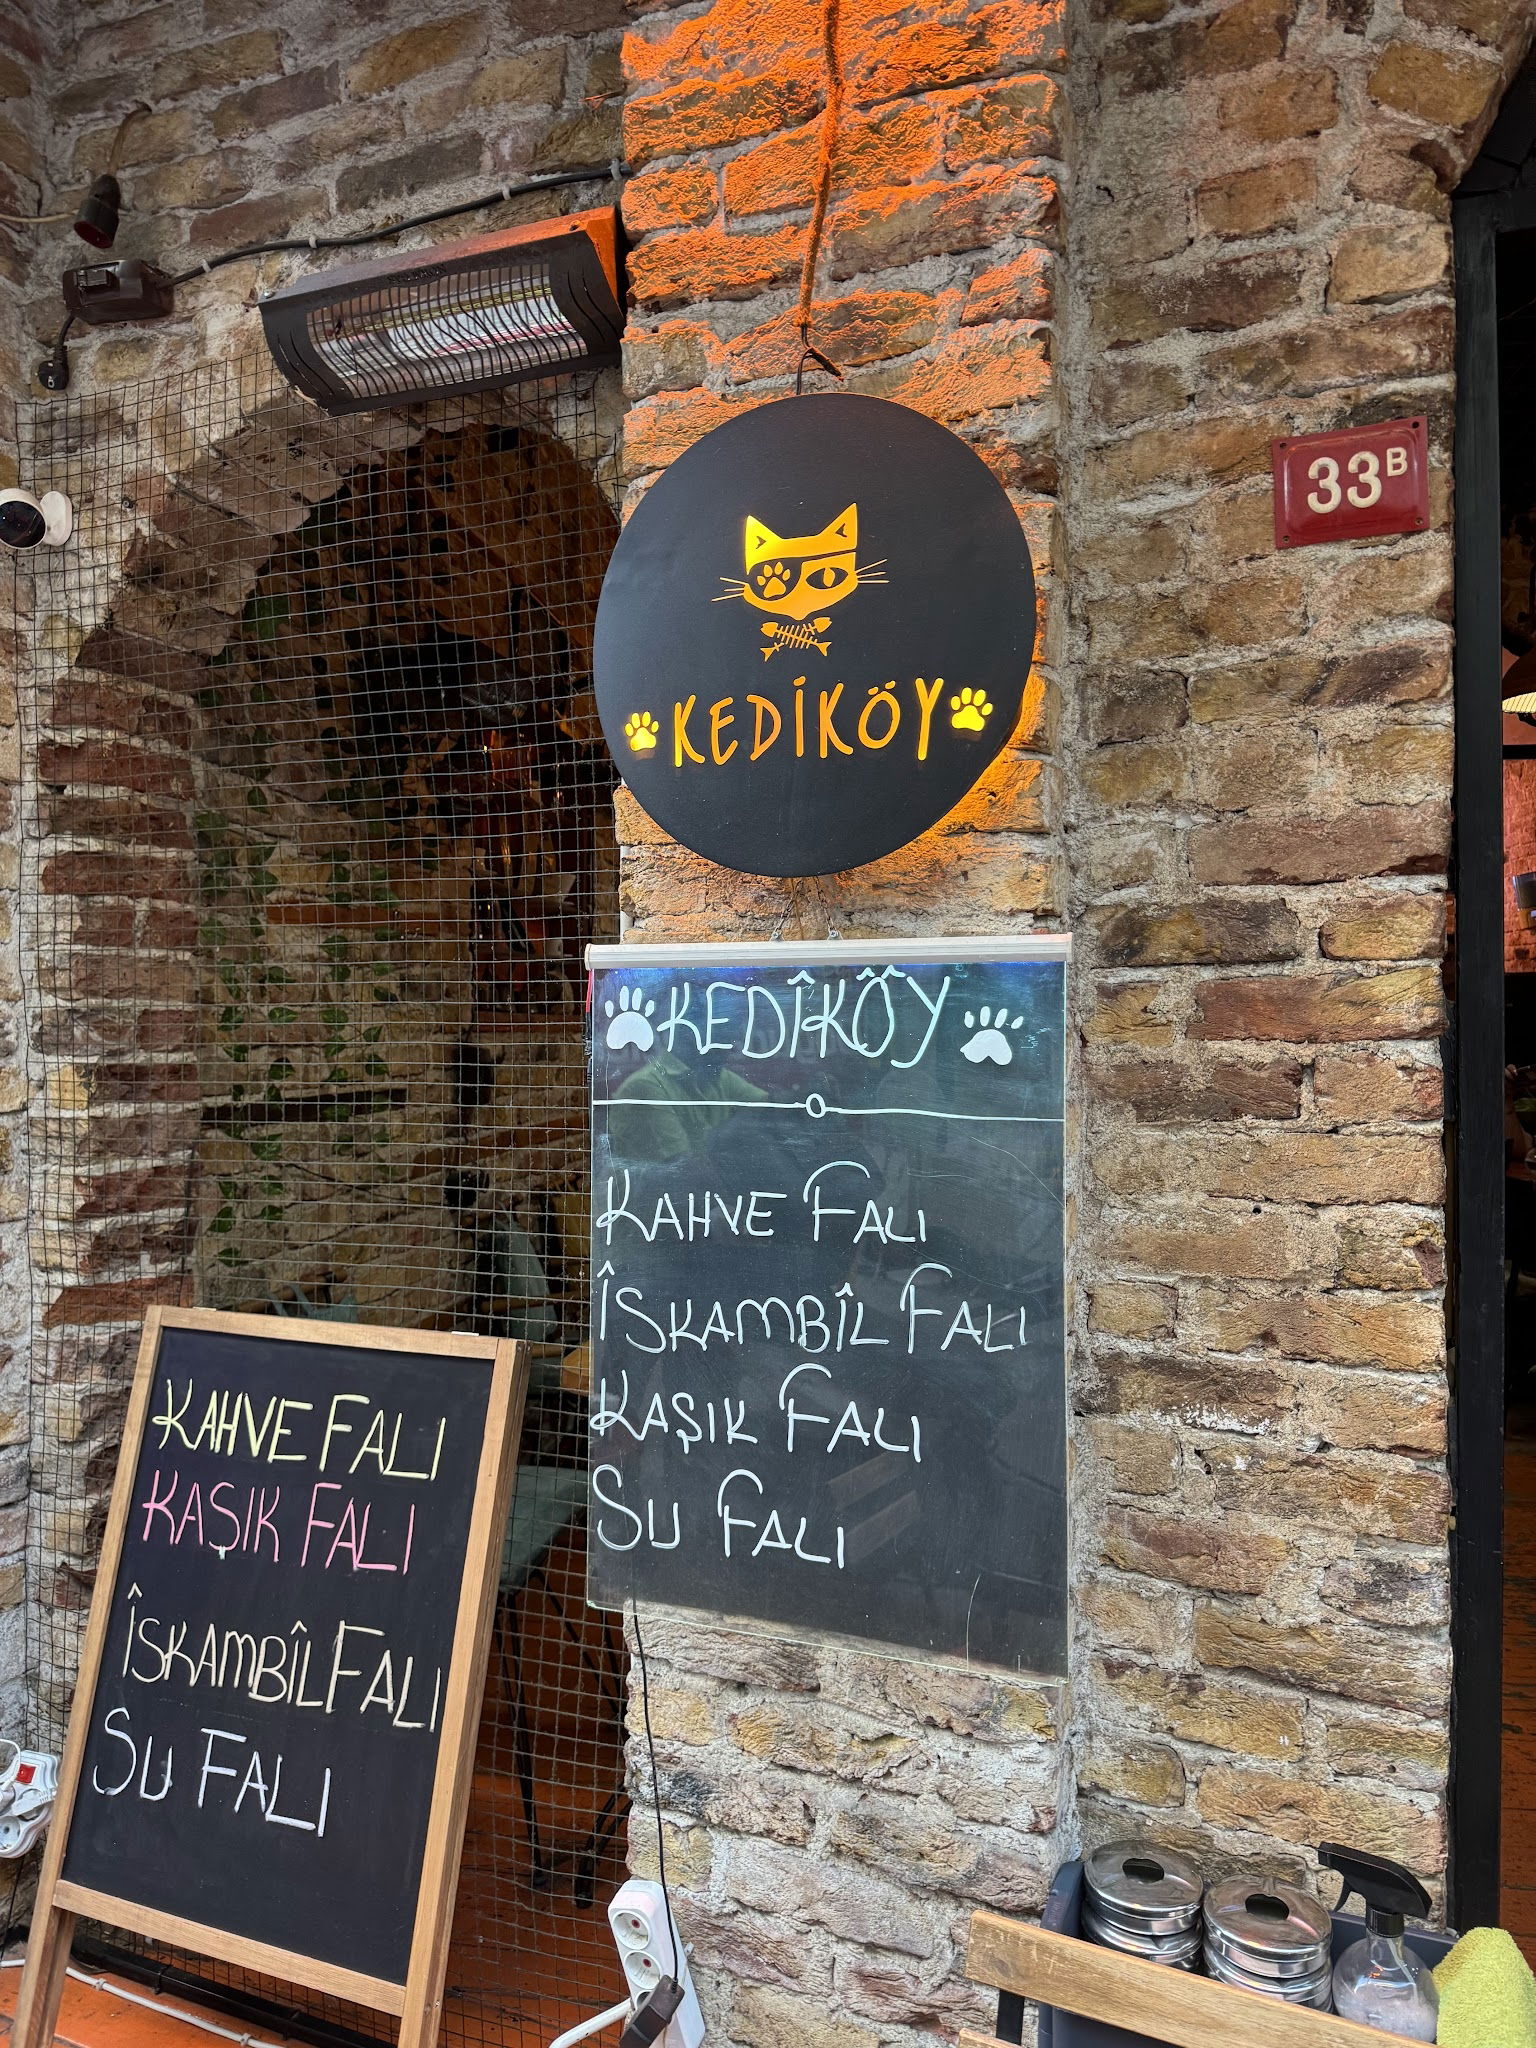 33B
KEDİKÖY
KEDÎKÖY
KAHVE FALI
ÎSKAMBÎL FALI
KAŞIK FALI
SU FALI
KAHVE FALI
KAŞIK FALI
ÎSKAMBÎL FALI
SU FALI